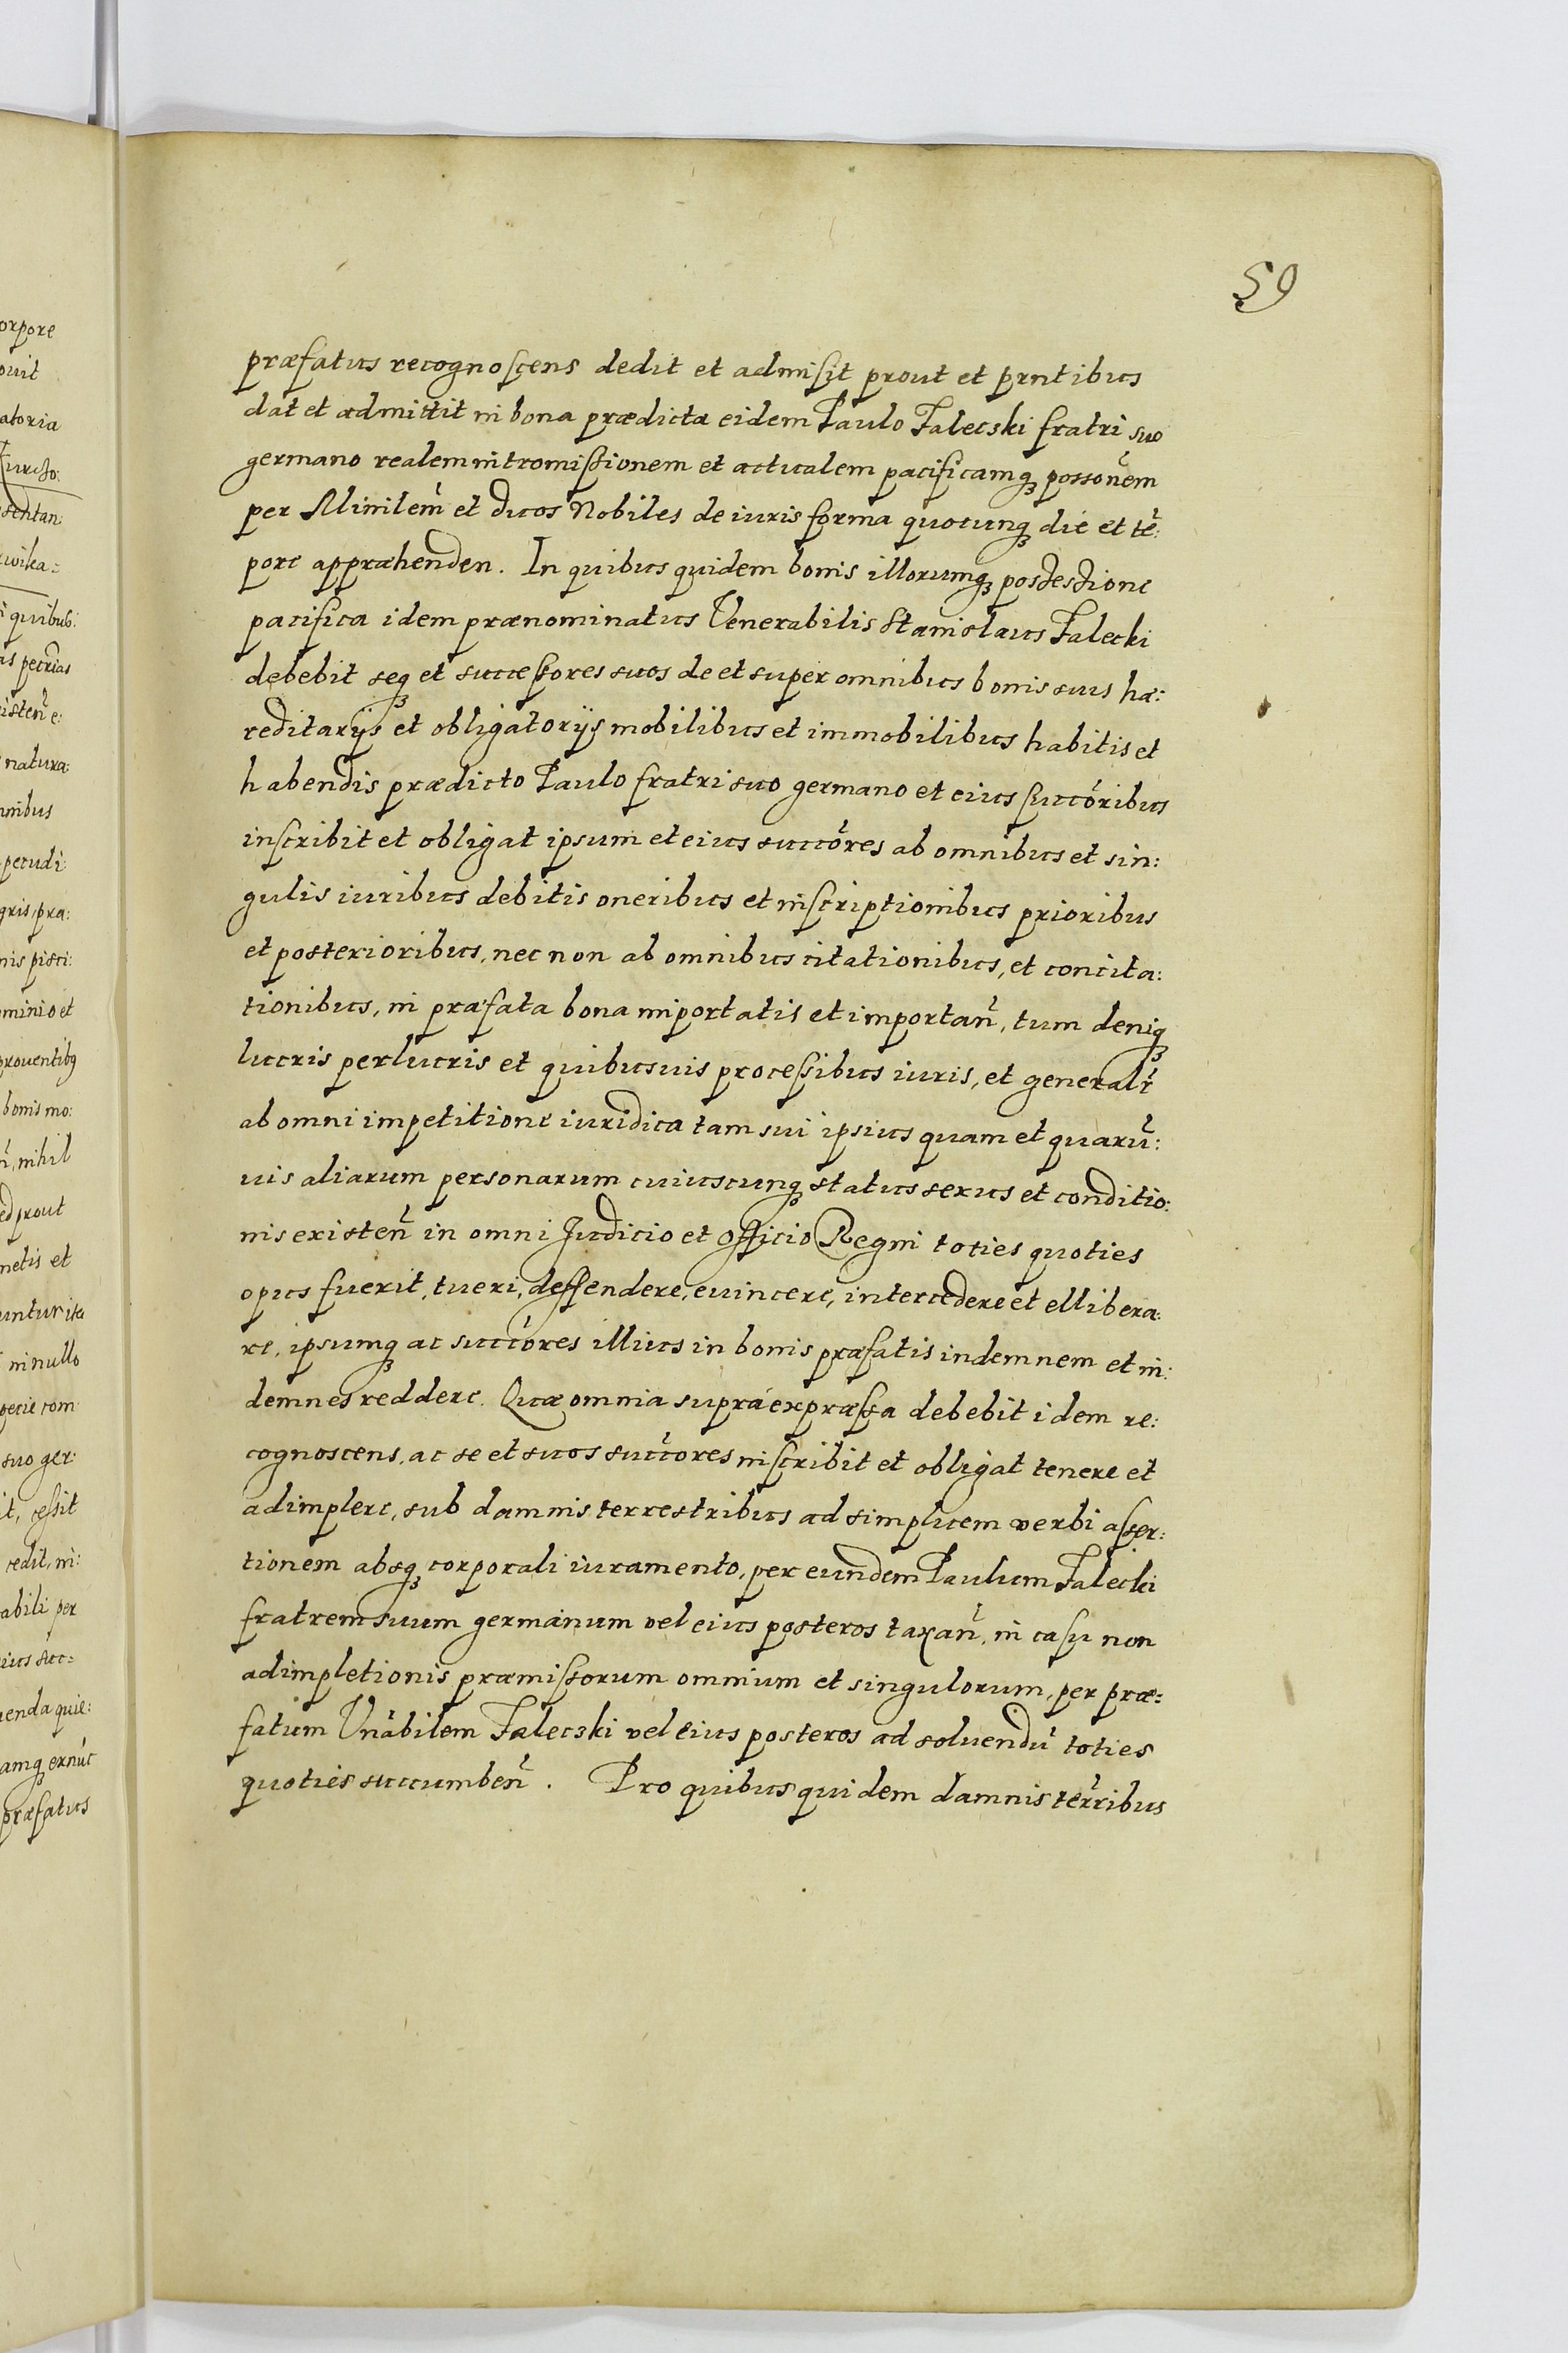 orpore
ouit
atoria
Iurcho:
sentan
wika:
i quibus:
as pecrias
isten̄ e:
natura:
nnibus
pecudi:
gris, pra:
nis pisci:
minio et
prouentibꝫ
bonis mo:
n̄, nihil
ed prout
metis et
untur ita
in nullo
pecie com
suo ger:
it, cessit
cedit, in:
abili per
ius suc:
uenda quie:
amqꝫ ex nūc
præfatus
59
præfatus recognoscens dedit et admisit prout et prntibus
dat et admittit in bona prædicta eidem Paulo Falecski fratri suo
germano realem intromissionem et actualem pacificamqꝫ possonēm
per Minilem̄ et dicos Nobiles de iuris forma quocunqꝫ die et tē:
pore appræhenden. In quibus quidem bonis illorumqꝫ possessione
pacifica idem prænominatus Venerabilis Stanislaus Falecki
debebit seqꝫ et successores suos de et super omnibus bonis suis hæ:
reditarijs et obligatorijs mobilibus et immobilibus habitis et
habendis prædicto Paulo fratri suo germano et eius succōribus
inscribit et obligat ipsum et eius succōres ab omnibus et sin:
gulis iuribus debitis oneribus et inscriptionibus prioribus
et posterioribus, nec non ab omnibus citationibus, et concita:
tionibus, in præfata bona importatis et importan̄, tum deniqꝫ
lucris perlucris et quibusuis processibus iuris, et generalr̄
ab omni impetitione iuridica tam sui ipsius quam et quarū:
uis aliarum personarum cuiuscunqꝫ status sexus et conditio:
nis existen̄ in omni Judicio et Officio Regni toties quoties
opus fuerit, tueri, deffendere, euincere, intercedere et ellibera:
re, ipsumqꝫ ac succōres illius in bonis præfatis indemnem et in:
demnes reddere. Quæ omnia supra expræssa debebit idem re:
cognoscens, ac se et suos succōres inscribit et obligat tenere et
adimplere, sub damnis terrestribus ad simplicem verbi asser:
tionem absqꝫ corporali iuramento, per eundem Paulum Falecki
fratrem suum germanum vel eius posteros taxan̄, in casu non
adimpletionis præmissorum omnium et singulorum, per præ=
fatum Vnābilem Falecski vel eius posteros ad soluendū toties
quoties succumben̄. Pro quibus quidem damnis terr̄ribus